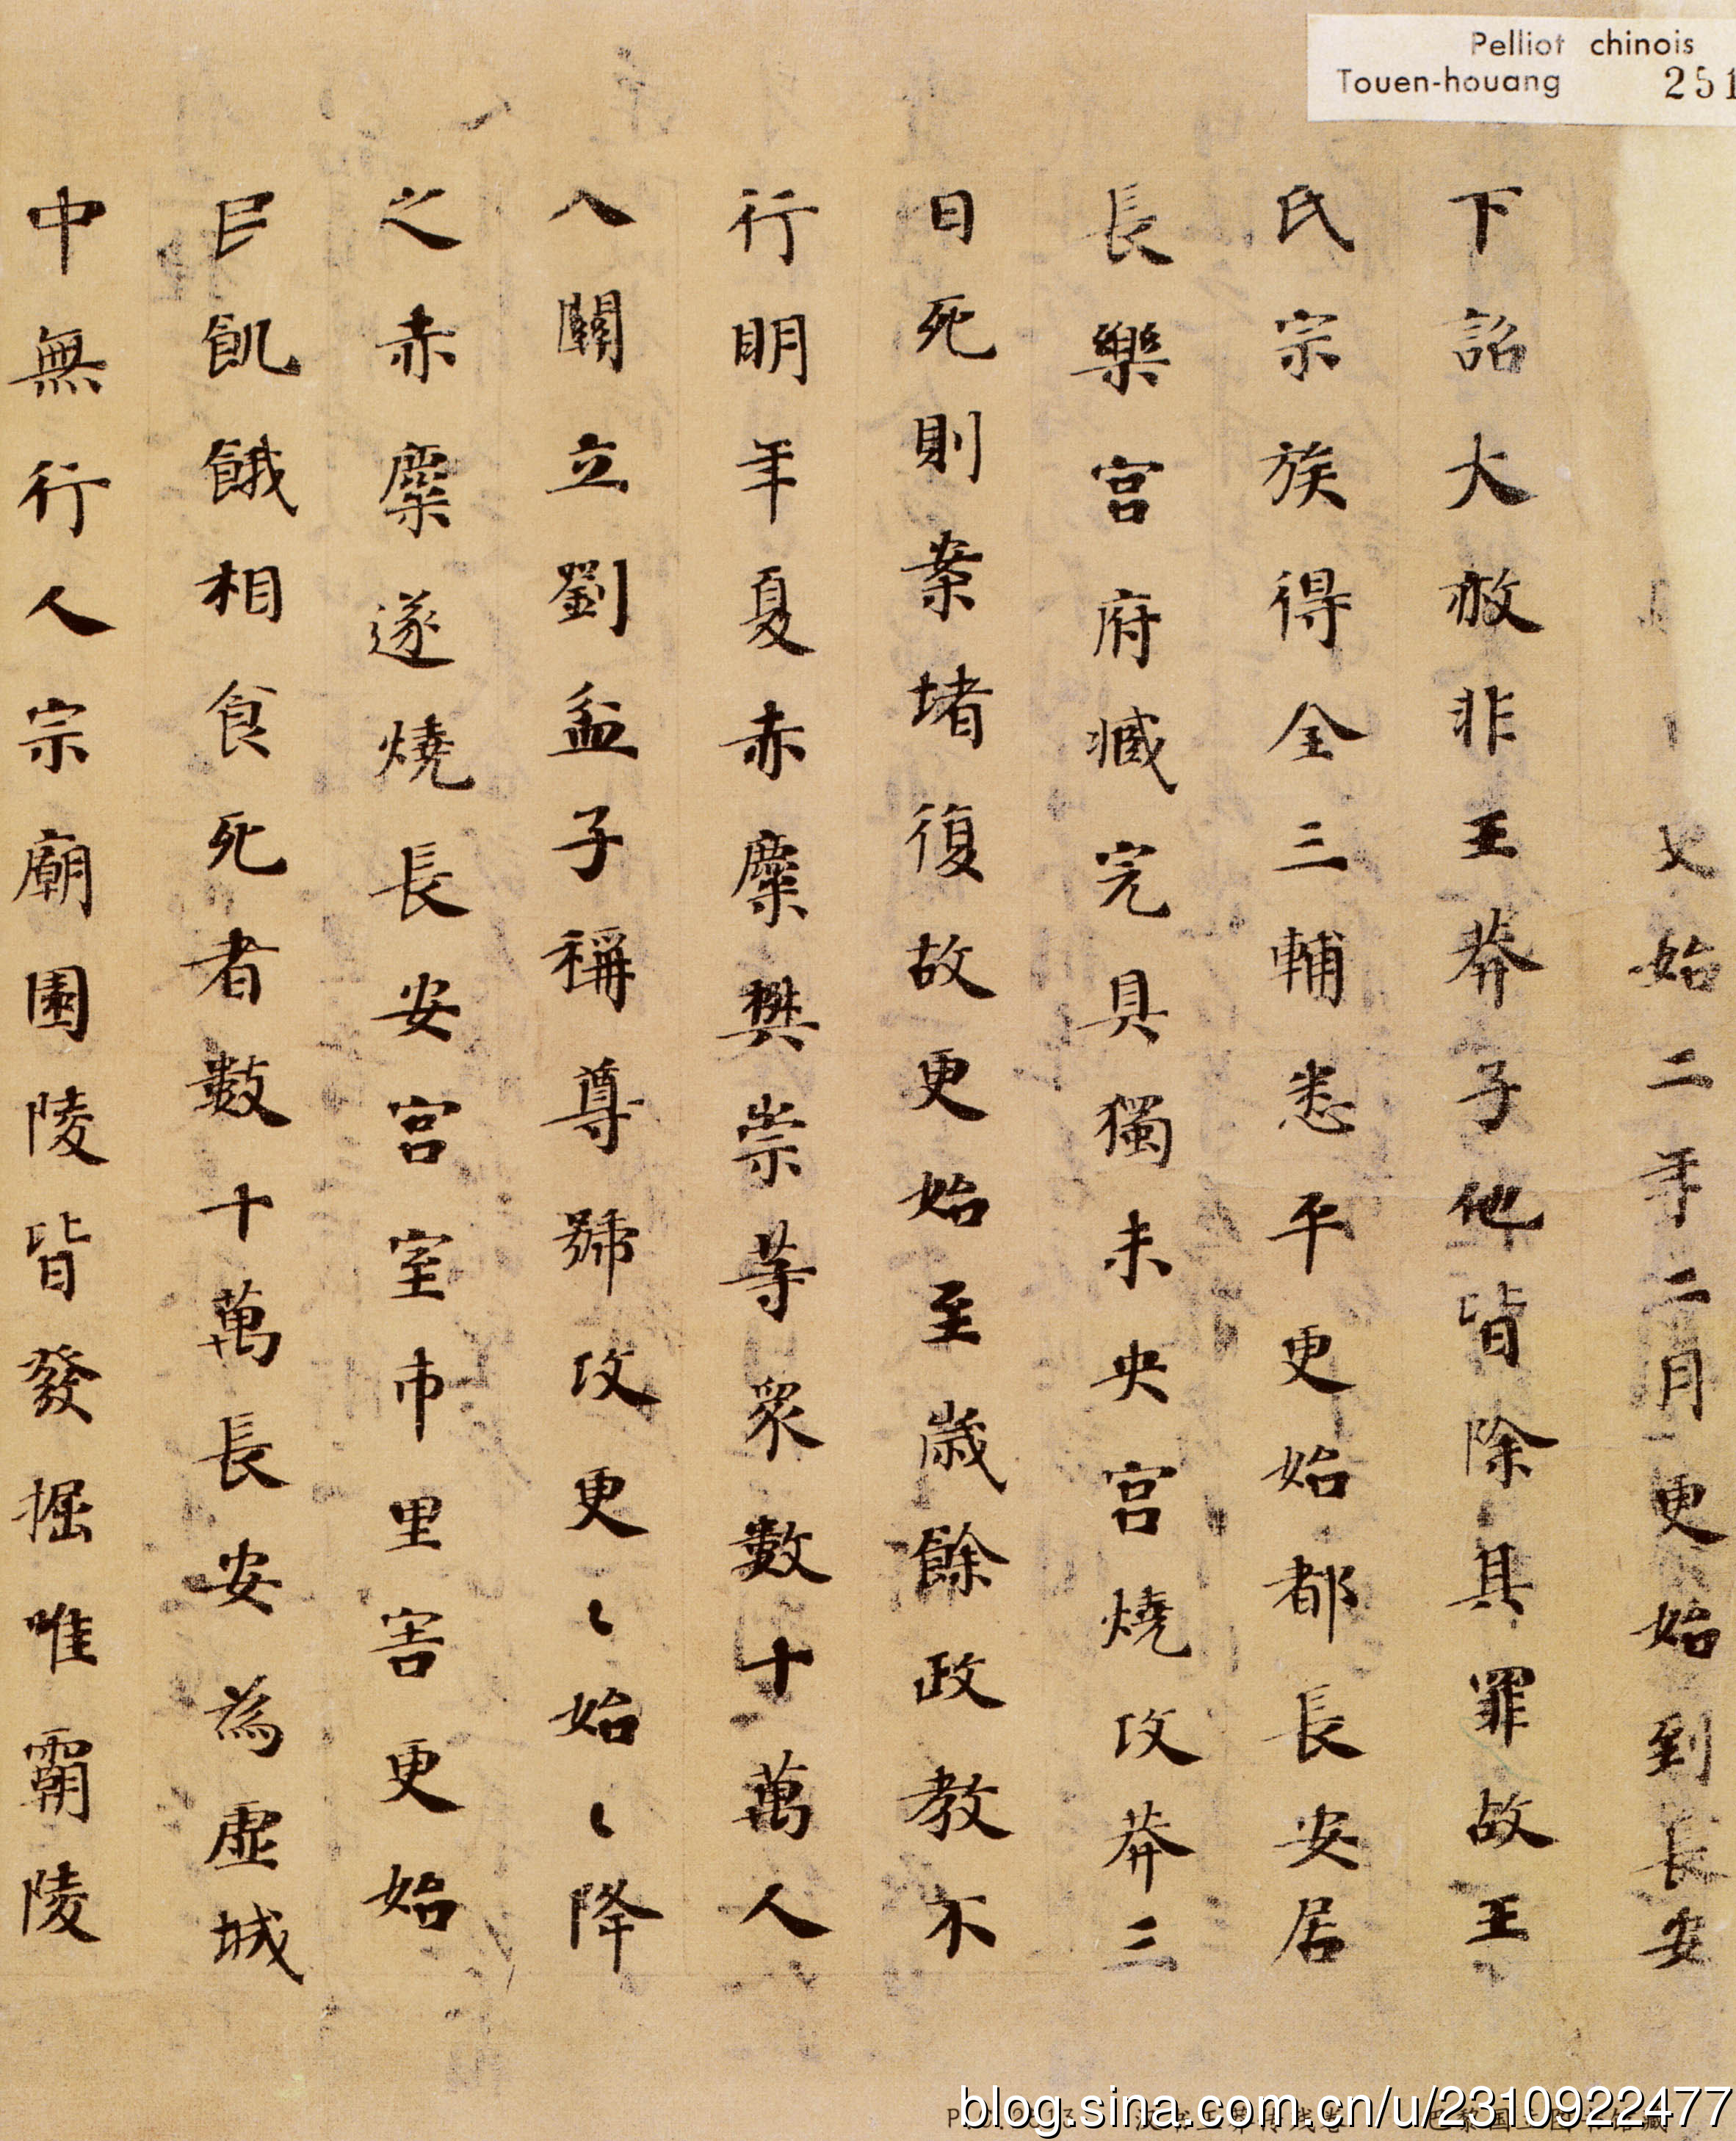 Pelliot chinois
Touen-houang 251
始二年二月更始到長安
下詔大赦非王莽子他皆除其罪故王
氏宗族得全三輔悉平更始都長安居
長樂宮府臧完具獨未央宮燒攻莽三
日死則案堵復故更始至歲餘政教不
行明年夏赤麋樊崇等眾數十萬人
入關立劉盆子稱尊號攻更〻始〻降
之赤麋遂燒長安宮室市里害更始
民飢餓相食死者數十萬長安為虛城
中無行人宗廟園陵皆發掘唯霸陵
blog.sina.com.cn/u/2310922477